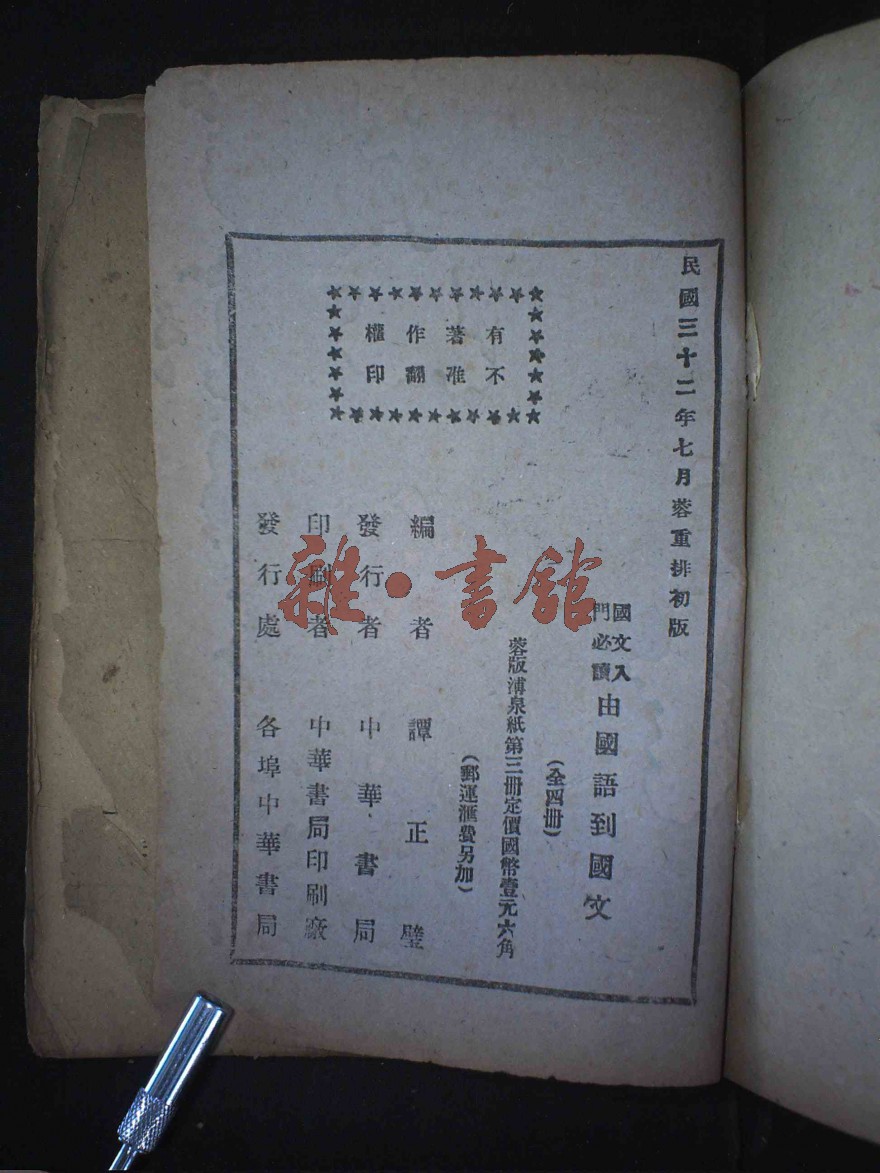 民國三十二年七月蓉重排初版
國文入門必讀
由國語到國文
(全四冊)
蓉版浦泉紙第三冊定價國幣壹元六角
(郵運滙費另加)
有著作權
不准翻印
編者 譚正璧
發行者 中華書局
印刷者 中華書局印刷廠
發行處 各埠中華書局
雜·書館